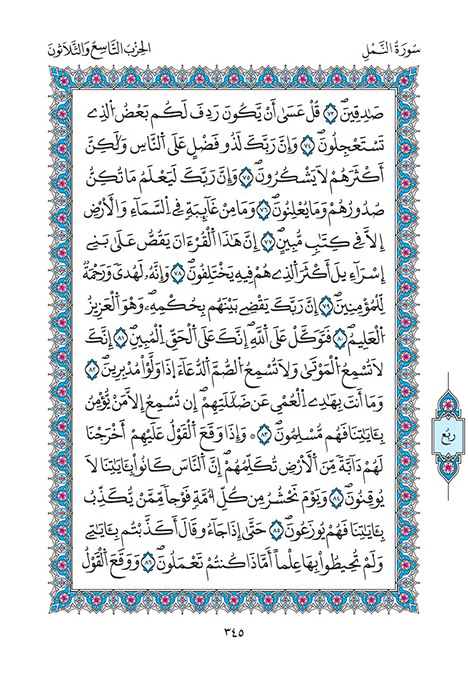 سُورَةُ النَّمْلِ
الحِزْبُ التَّاسِعُ وَالثَّلَاثُونَ
صَٰدِقِينَۖ ٧٣ قُلْ عَسَىٰٓ أَنْ يَّكُونَ رَدِفَ لَكُم بَعْضُ اُلذِے
تَسْتَعْجِلُونَۖ ٧٤ وَإِنَّ رَبَّكَ لَذُو فَضْلٍ عَلَى اَلنَّاسِ وَلَٰكِنَّ
أَكْثَرَهُمْ لَا يَشْكُرُونَۖ ٧٥ وَإِنَّ رَبَّكَ لَيَعْلَمُ مَا تُكِنُّ
صُدُورُهُمْ وَمَا يُعْلِنُونَۖ ٧٦ وَمَا مِنْ غَآئِبَةٖ فِے اِلسَّمَآءِ وَالَارْضِ
إِلَّا فِے كِتَٰبٖ مُّبِينٍۖ ٧٧ اِنَّ هَٰذَا اَلْقُرْءَانَ يَقُصُّ عَلَىٰ بَنِےٓ
إِسْرَآءِيلَ أَكْثَرَ اَلذِے هُمْ فِيهِ يَخْتَلِفُونَۖ ٧٨ وَإِنَّهُۥ لَهُدىٗ وَرَحْمَةٞ
لِّلْمُؤْمِنِينَۖ ٧٩ إِنَّ رَبَّكَ يَقْضِے بَيْنَهُم بِحُكْمِهِۦۖ وَهُوَ اَلْعَزِيزُ
اُلْعَلِيمُۖ ٨٠ فَتَوَكَّلْ عَلَى اَللَّهِۖ إِنَّكَ عَلَى اَلْحَقِّ اِلْمُبِينِۖ ٨١ إِنَّكَ
لَا تُسْمِعُ اُلْمَوْتَىٰ وَلَا تُسْمِعُ اُلصُّمَّ اَلدُّعَآءَ اِذَا وَلَّوْاْ مُدْبِرِينَۖ ٨٢
وَمَآ أَنتَ بِهَٰدِے اِلْعُمْيِ عَن ضَلَٰلَتِهِمْۖ إِن تُسْمِعُ إِلَّا مَنْ يُّؤْمِنُ
بِـَٔايَٰتِنَا فَهُم مُّسْلِمُونَۖ ٨٣ ۞ وَإِذَا وَقَعَ اَلْقَوْلُ عَلَيْهِمُۥٓ أَخْرَجْنَا
لَهُمْ دَآبَّةٗ مِّنَ اَلَارْضِ تُكَلِّمُهُمُۥٓۖ إِنَّ اَلنَّاسَ كَانُواْ بِـَٔايَٰتِنَا لَا
يُوقِنُونَۖ ٨٤ وَيَوْمَ نَحْشُرُ مِن كُلِّ أُمَّةٖ فَوْجاٗ مِّمَّنْ يُّكَذِّبُ
بِـَٔايَٰتِنَا فَهُمْ يُوزَعُونَۖ ٨٥ حَتَّىٰٓ إِذَا جَآءُو قَالَ أَكَذَّبْتُم بِـَٔايَٰتِے
وَلَمْ تُحِيطُواْ بِهَا عِلْماً اَمَّاذَا كُنتُمْ تَعْمَلُونَۖ ٨٦ وَوَقَعَ اَلْقَوْلُ
ربع
٣٤٥